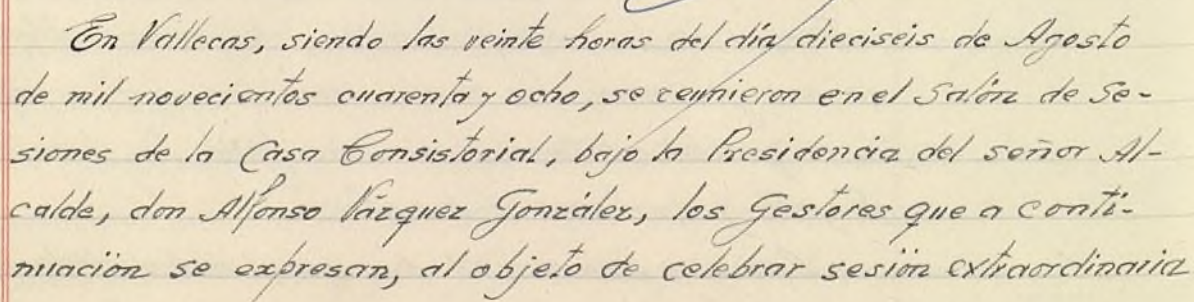 En Vallecas, siendo las veinte horas del día dieciseis de Agosto
de mil novecientos cuarenta y ocho, se reunieron en el Salón de Se-
siones de la Casa Consistorial, bajo la Presidencia del señor Al-
calde, don Alfonso Vázquez González, los Gestores que a conti-
nuación se expresan, al objeto de celebrar sesión extraordinaria